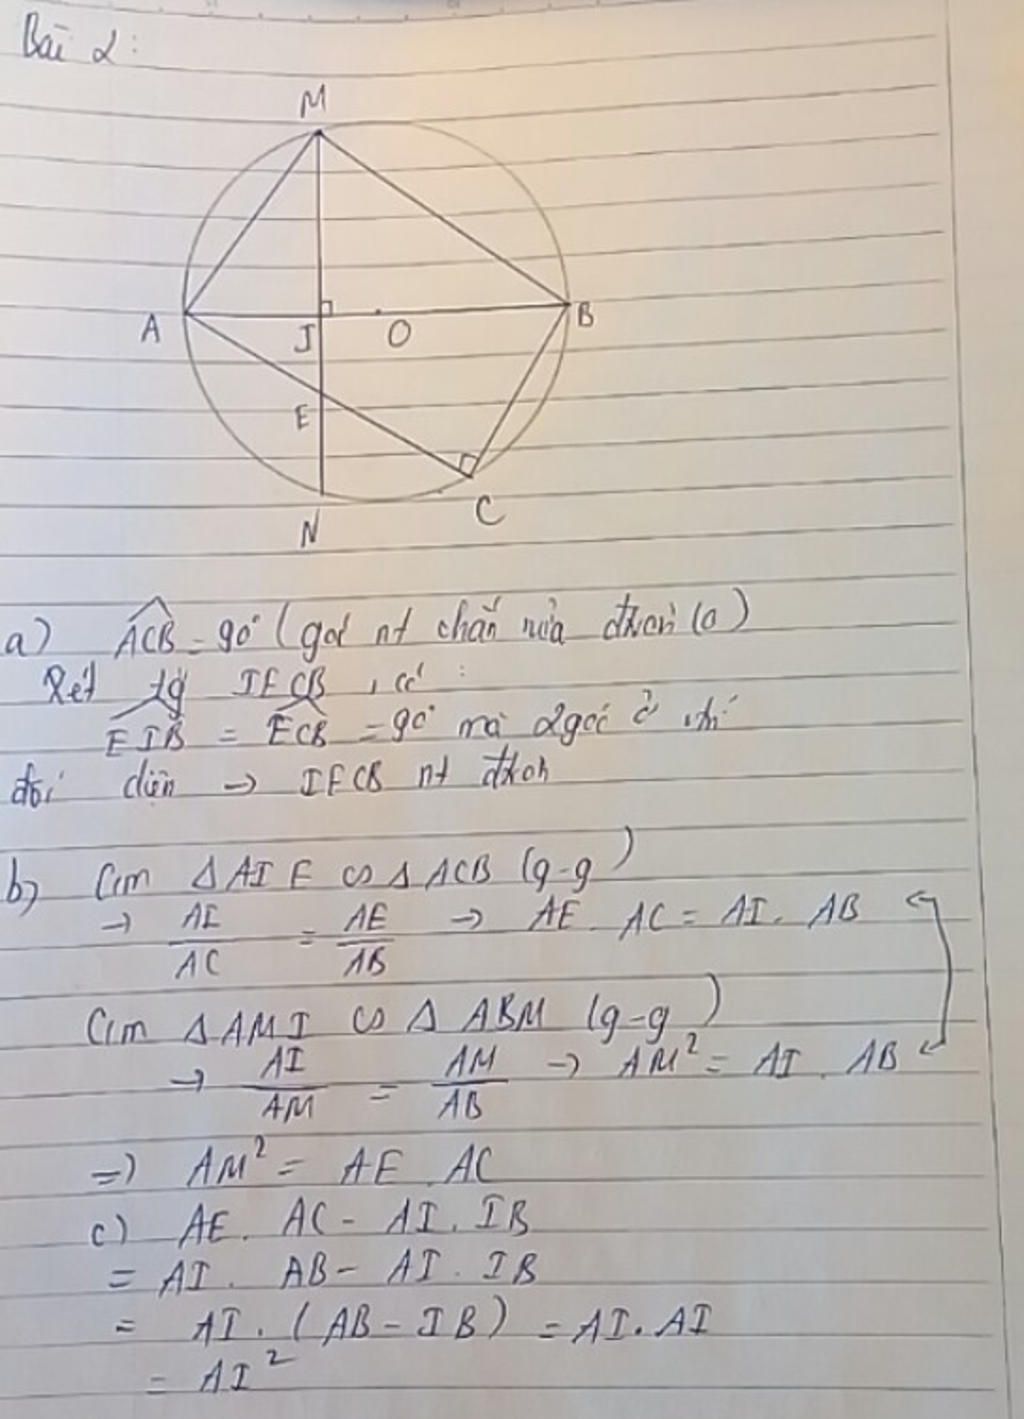 Bài 2:
M
A
J
O
B
E
N
C
a) ACB = 90° (góc nt chắn nửa đtròn (O)
Xét tg IECB, có:
EIB = ECB = 90° mà 2 góc ở vtrí
đối diện → IECB nt đtròn
b) Cm Δ AIE ∽ Δ ACB (g-g)
→ AI/AC = AE/AB → AE. AC = AI. AB
Cm Δ AMI ∽ Δ ABM (g-g)
→ AI/AM = AM/AB → AM² = AI. AB
=> AM² = AE. AC
c) AE. AC - AI. IB
= AI. AB - AI. IB
= AI. (AB - IB) = AI. AI
= AI²